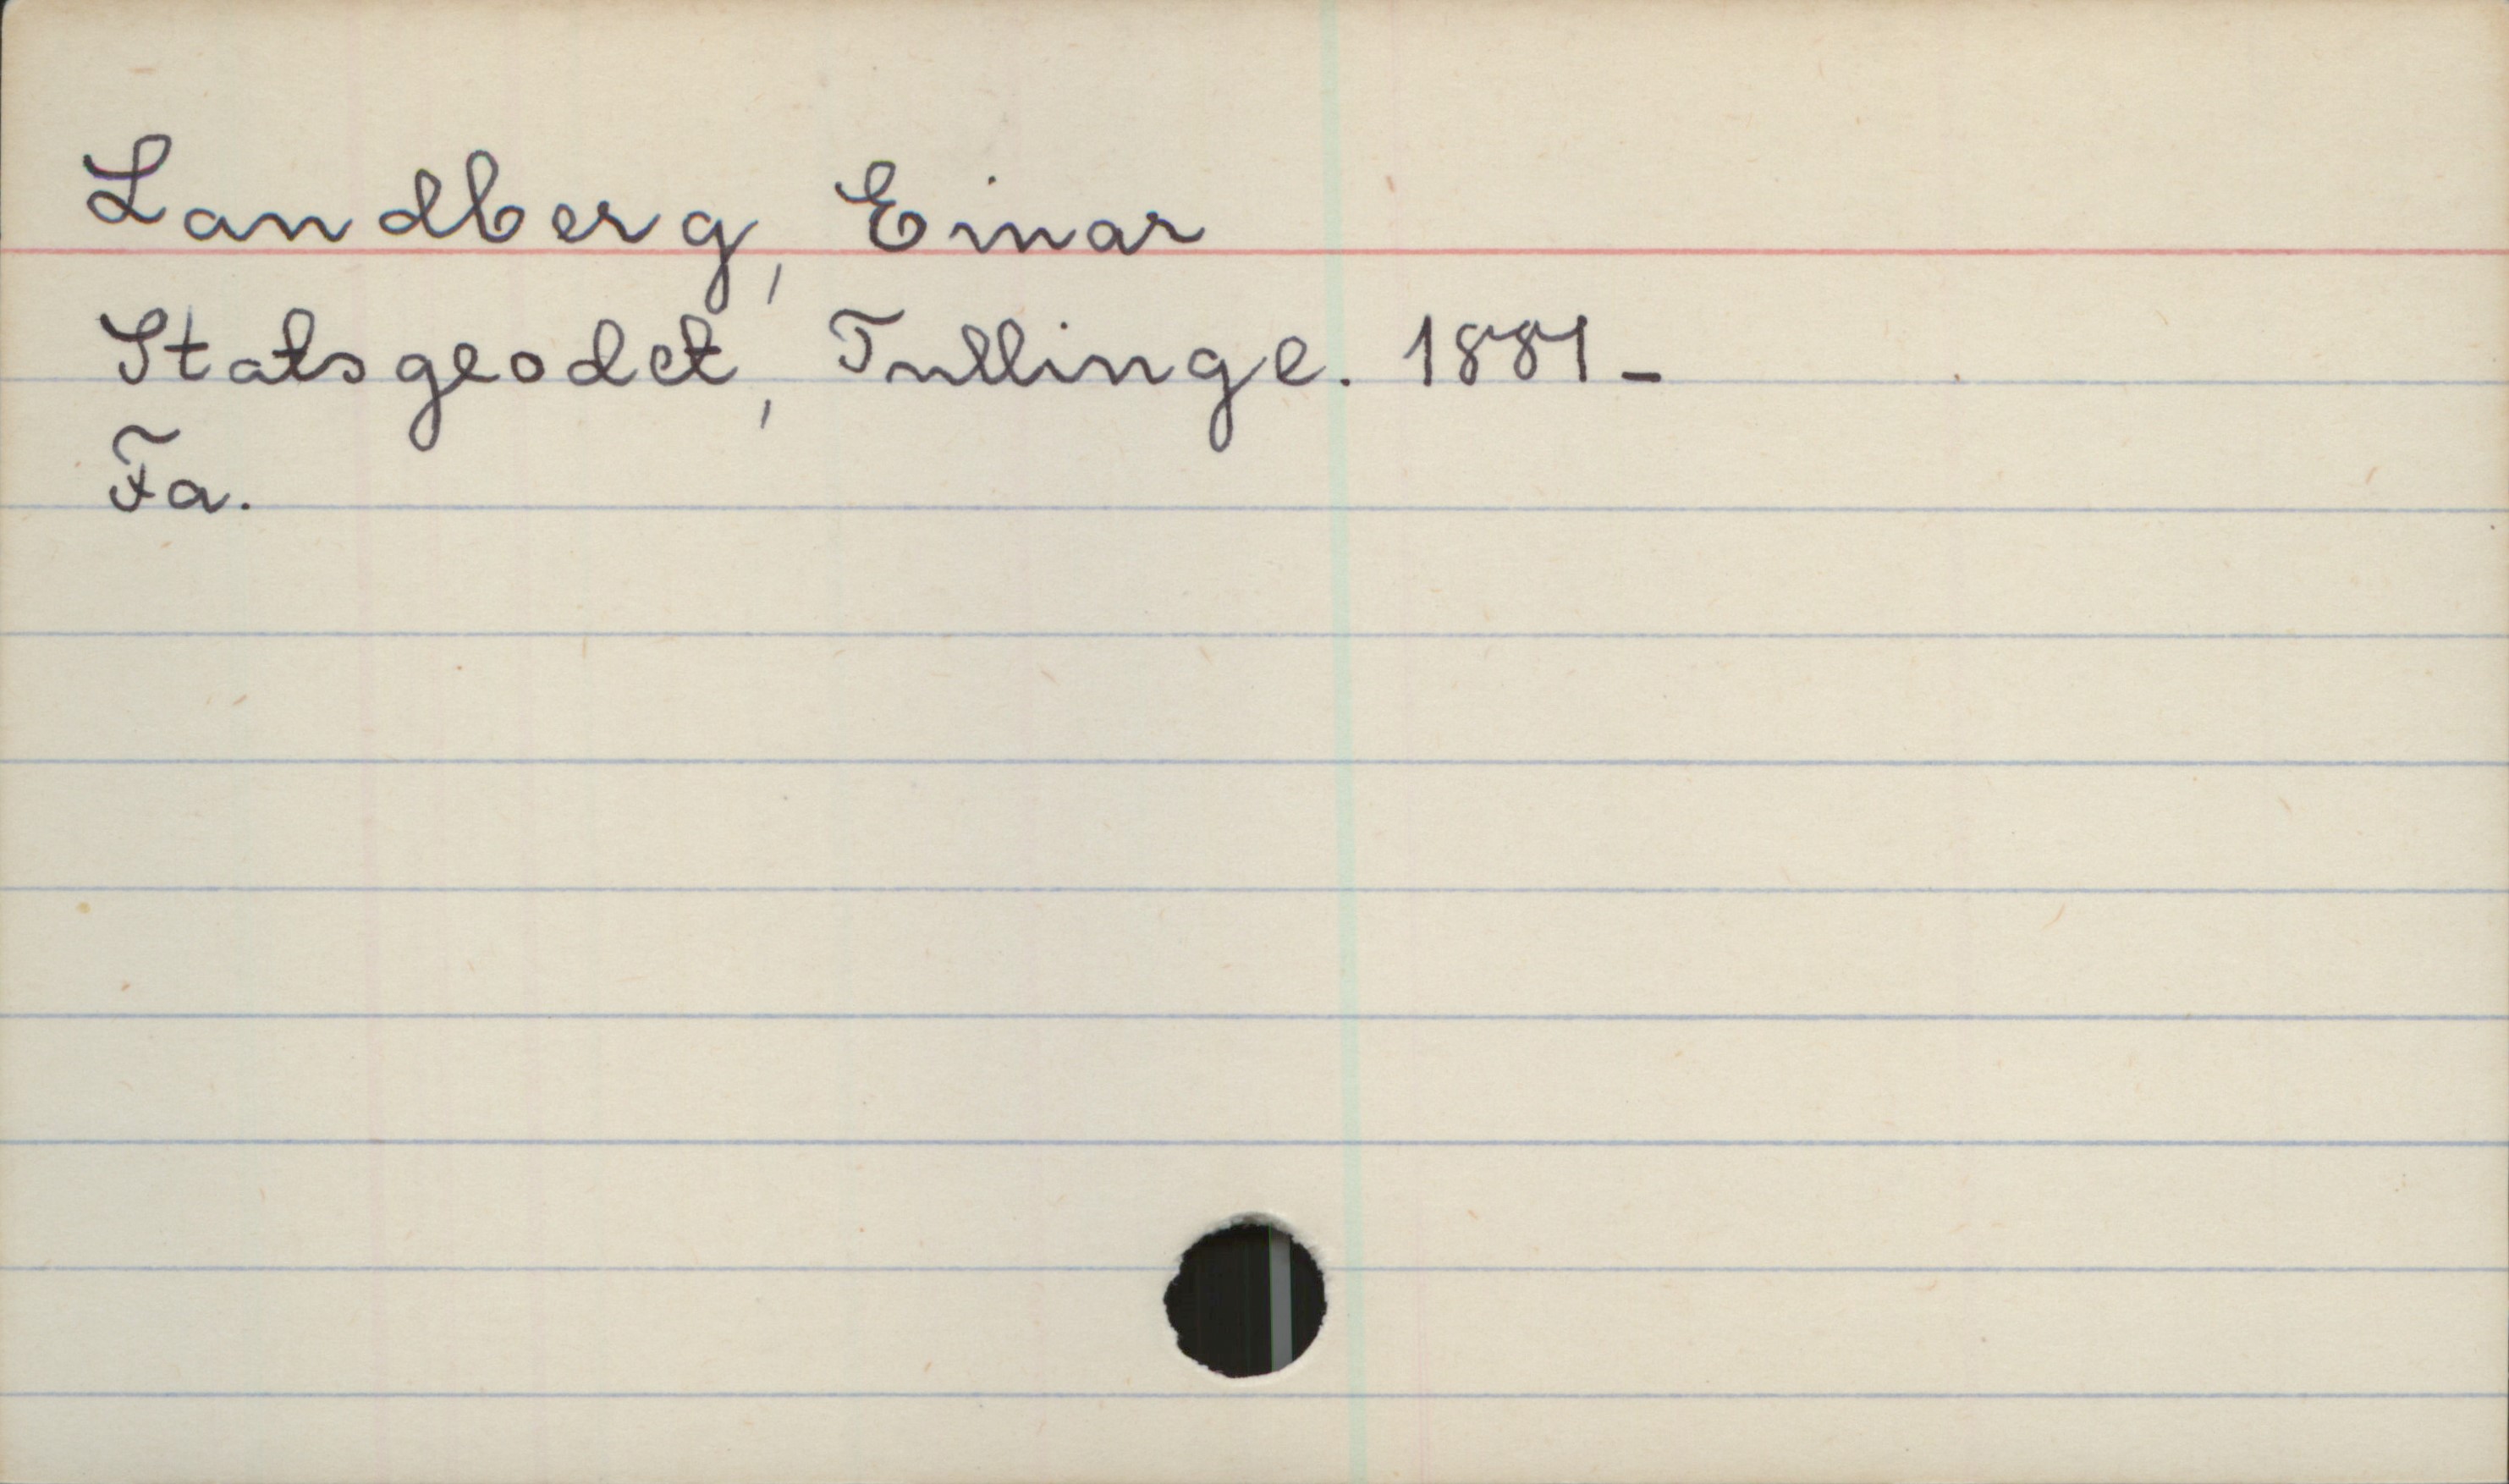 Landberg, Einar
Statsgeodet, Tullinge. 1881-
Fa.